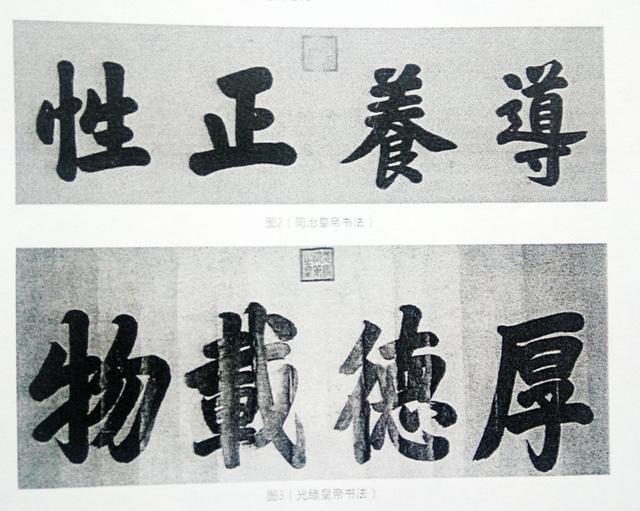 導養正性
图2（同治皇帝书法）
厚德載物
图3（光绪皇帝书法）